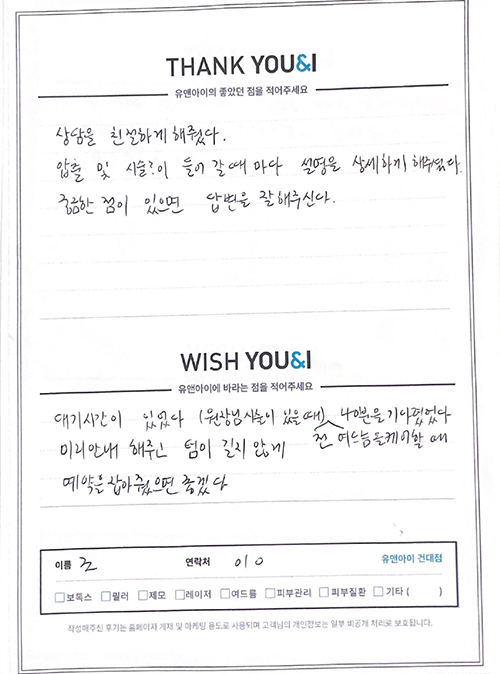 THANK YOU&I
유앤아이의 좋았던 점을 적어주세요
상담을 친절하게 해줬다.
압출 및 시술?이 들어 갈때 마다 설명을 상세하기 해주셨다.
궁금한 점이 있으면 답변을 잘해주신다.
WISH YOU&I
유앤아이에 바라는 점을 적어주세요
대기시간이 있었다 (원장님시술이 있을때)
미리안내 해주고 텀이 길지 않게 전 여드름을케어할 때
예약을잡아줬으면 좋겠다
이름 조 연락처 010 유앤아이 건대점
보톡스 필러 제모 레이저 여드름 피부관리 피부질환 기타 ( )
작성해주신 후기는 홈페이지 게재 및 마케팅 용도로 사용되며 고객님의 개인정보는 일부 비공개 처리로 보호됩니다.